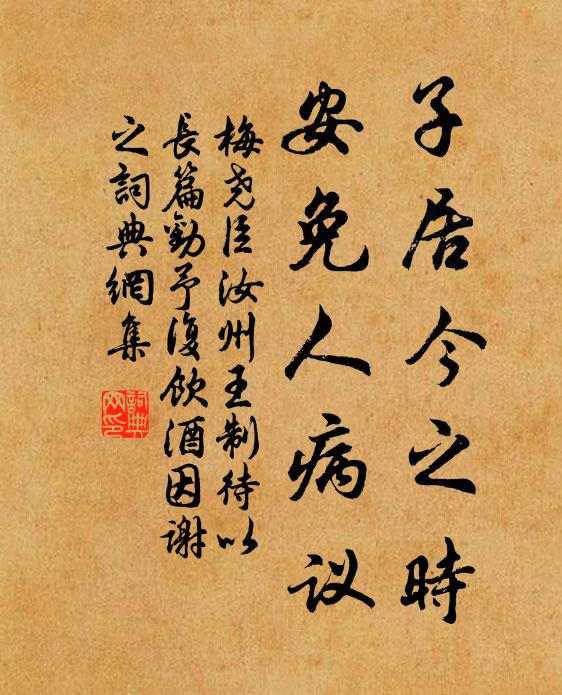 子居今之時
安免人病议
梅尧臣汝州王制待以
長篇勸予復飲酒因謝
之詞典網集
詞典网印